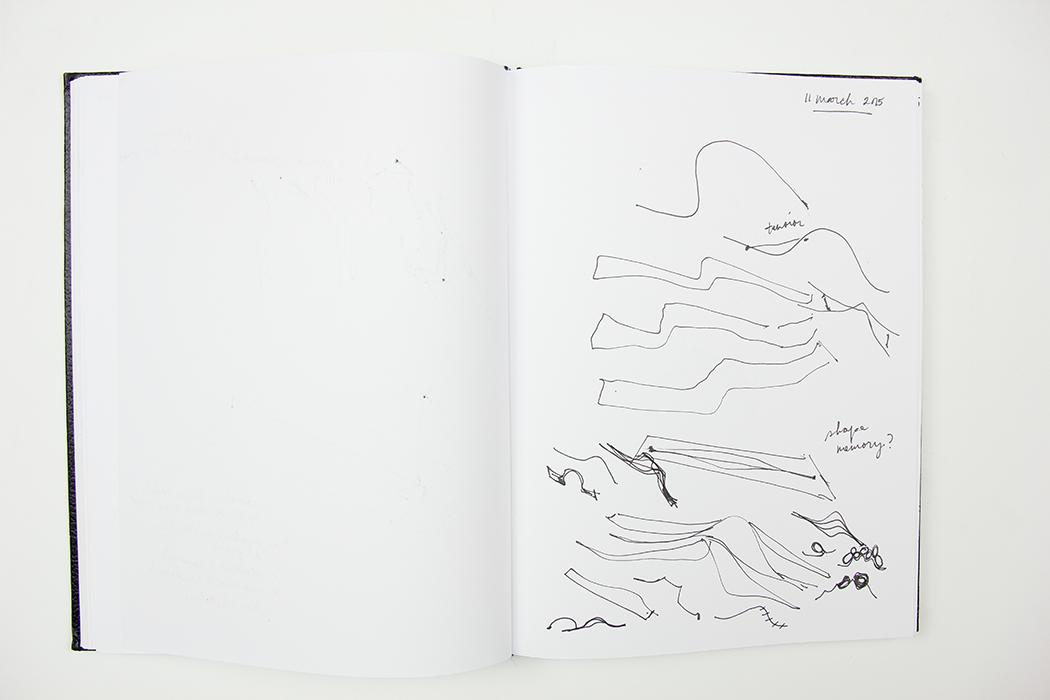 11 march 2015
tension
shape
memory?